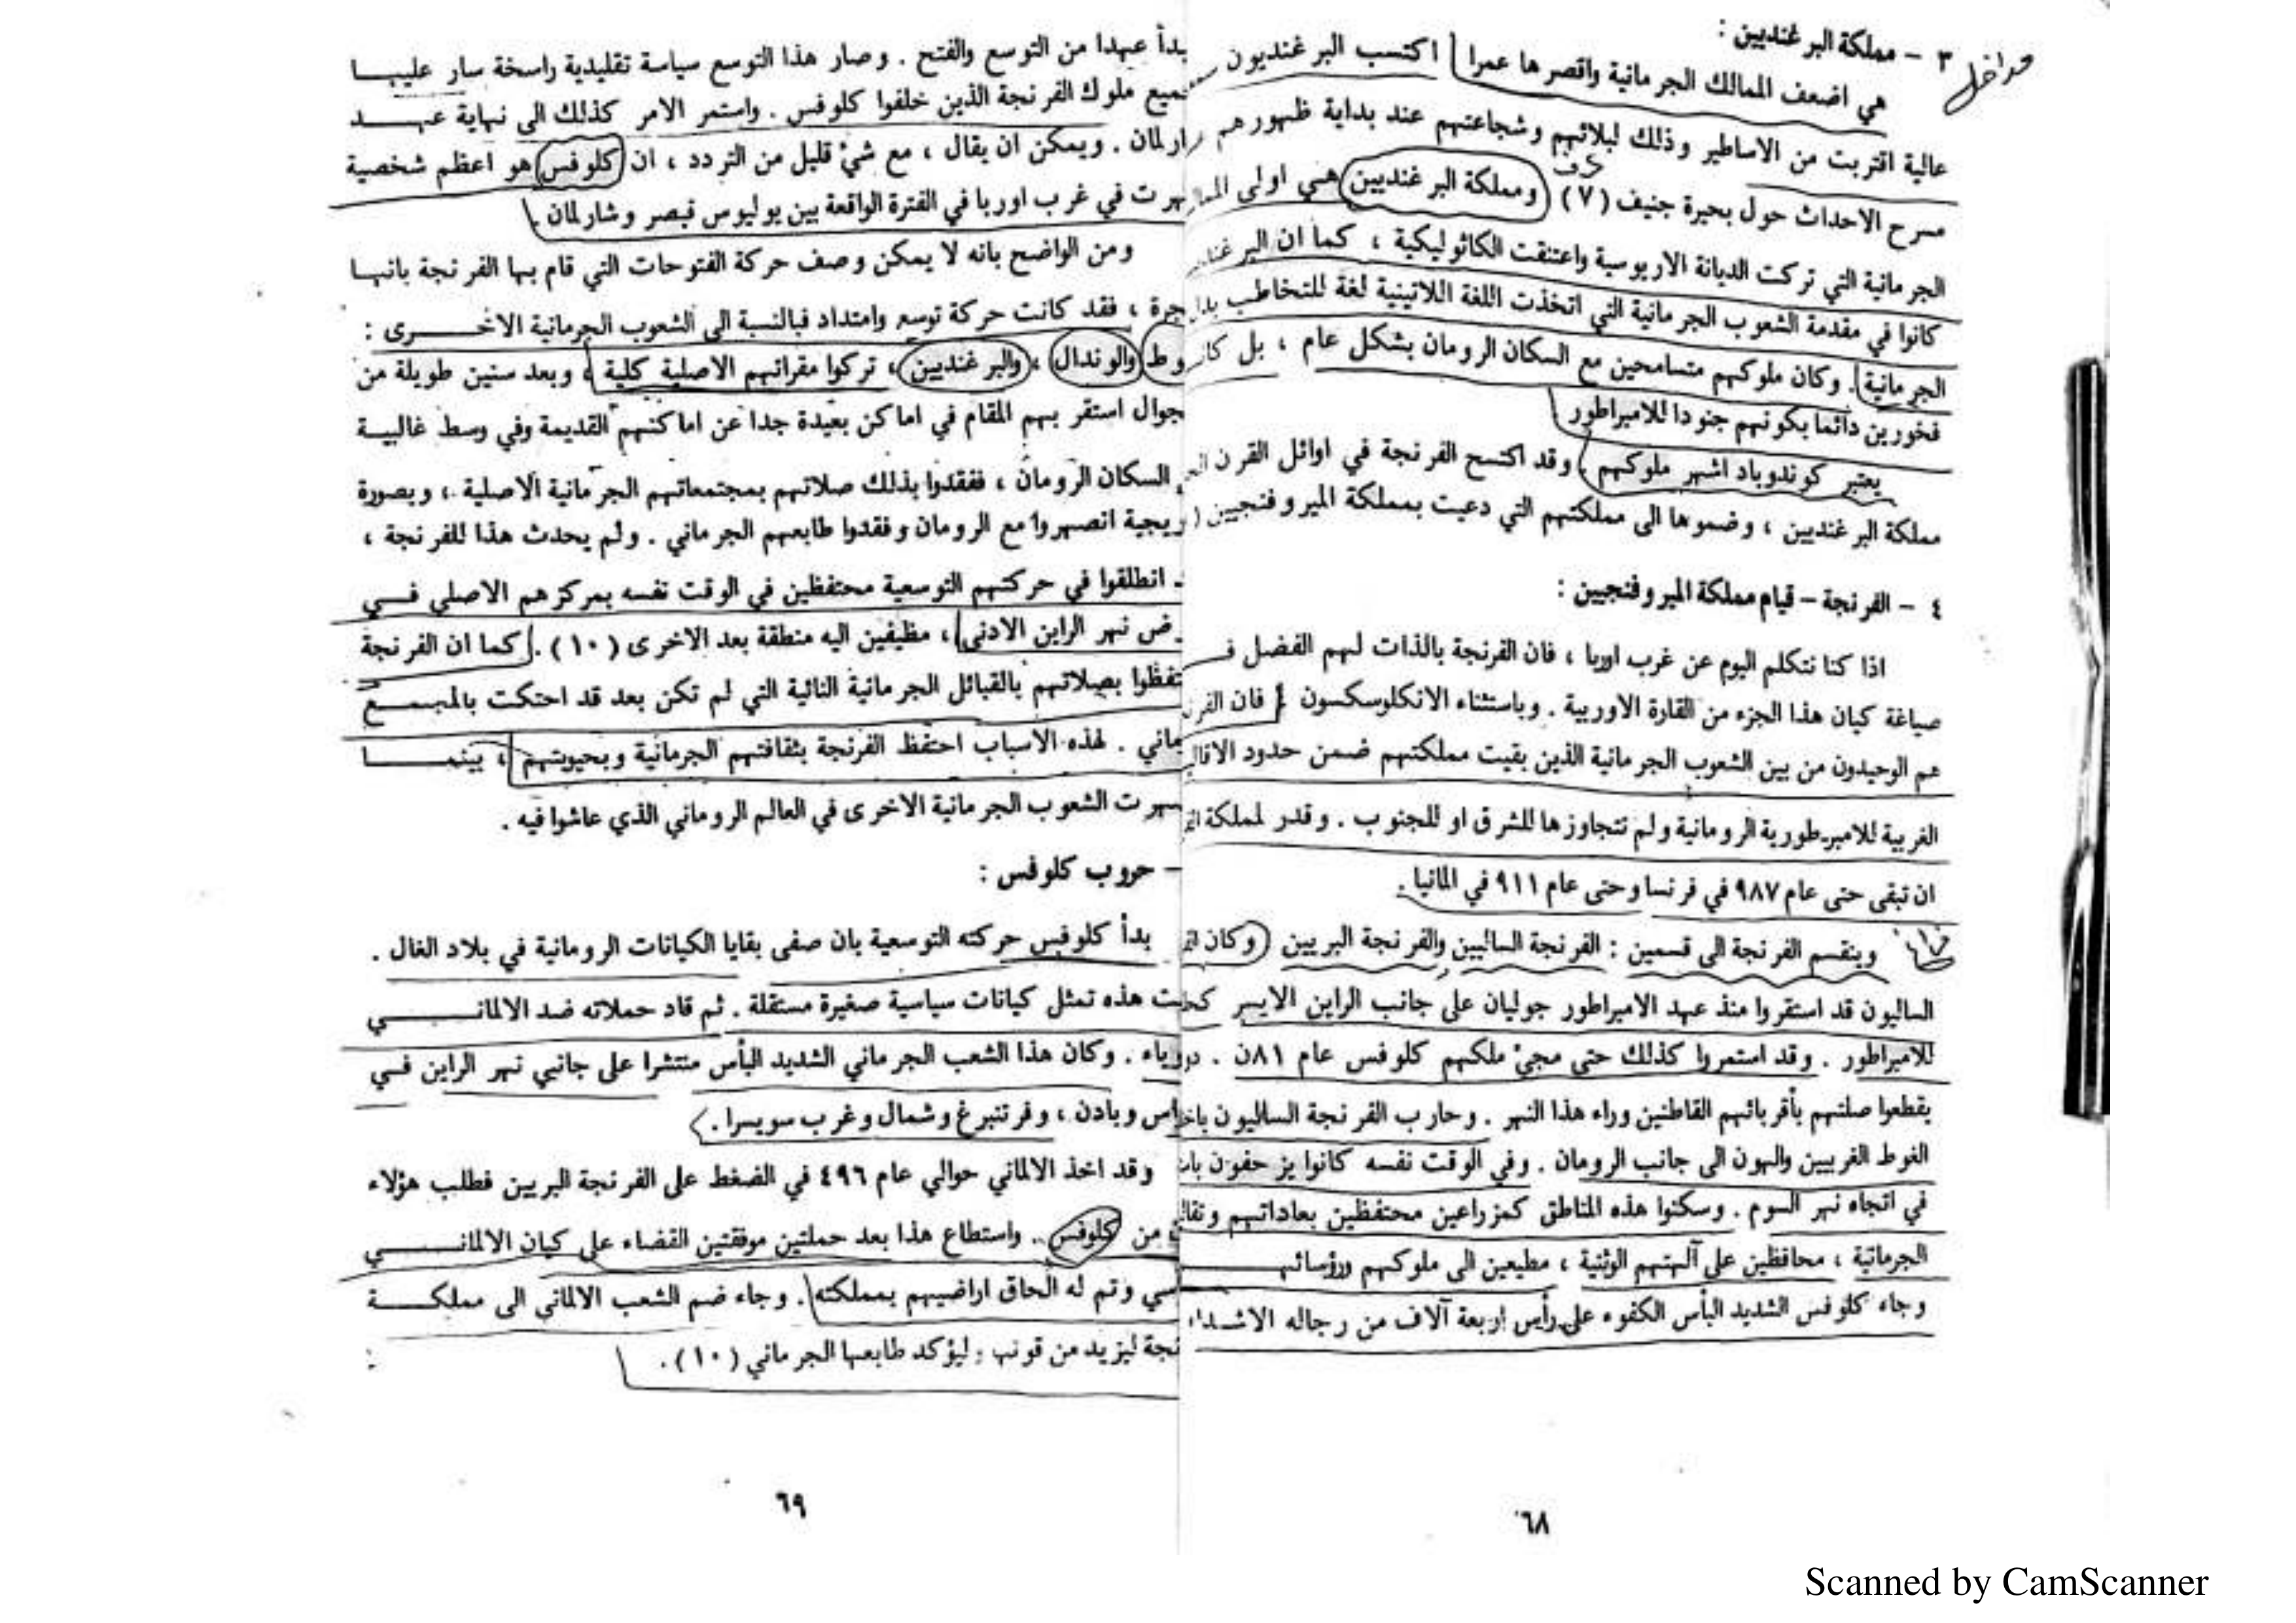 ٣ - مملكة البرغنديين :
هي اضعف الممالك الجرمانية واقصرها عمرا اكتسب البرغنديون
عالية اقتربت من الاساطير وذلك لبلائهم وشجاعتهم عند بداية ظهورهم
مسرح الاحداث حول بحيرة جنيف (٧) ومملكة البرغنديين هي اولى
الجرمانية التي تركت الديانة الاريوسية واعتنقت الكاثوليكية ، كما ان
كانوا في مقدمة الشعوب الجرمانية التي اتخذت اللغة اللاتينية لغة للتخاطب
الجرمانية . وكان ملوكهم متسامحين مع السكان الرومان بشكل عام ، بل
فخورين دائما بكونهم جنودا للامبراطور
يعتبر كوندوباد اشهر ملوكهم . وقد اكتسح الفرنجة في اوائل القرن
مملكة البرغنديين ، وضموها الى مملكتهم التي دعيت بمملكة الميروفنجيين
٤ - الفرنجة - قيام مملكة الميروفنجيين :
اذا كنا نتكلم اليوم عن غرب اوربا ، فان الفرنجة بالذات لهم الفضل
صياغة كيان هذا الجزء من القارة الاوربية . وباستثناء الانكلوسكسون فان
هم الوحيدون من بين الشعوب الجرمانية الذين بقيت مملكتهم ضمن حدود
الغربية للامبرطورية الرومانية ولم تتجاوزها للشرق او للجنوب . وقدر لمملكة
ان تبقى حتى عام ٩٨٧ في فرنسا وحتى عام ٩١١ في المانيا .
وينقسم الفرنجة الى قسمين : الفرنجة الساليين والفرنجة البريين وكان
الساليون قد استقروا منذ عهد الامبراطور جوليان على جانب الراين الايسر
للامبراطور . وقد استمروا كذلك حتى مجيء ملكهم كلوفس عام
يقطعوا صلتهم بأقربائهم القاطنين وراء هذا النهر . وحارب الفرنجة الساليون
الغوط الغربيين والهون الى جانب الرومان . وفي الوقت نفسه كانوا يزحفون
في اتجاه نهر السوم . وسكنوا هذه المناطق كمزراعين محتفظين بعاداتهم
الجرمانية ، محافظين على آلهتهم الوثنية ، مطيعين الى ملوكهم
وجاء كلوفس الشديد البأس الكفوء على رأس اربعة آلاف من رجاله الاشداء
٦٨
عهدا من التوسع والفتح . وصار هذا التوسع سياسة تقليدية راسخة سار عليها
ملوك الفرنجة الذين خلفوا كلوفس . واستمر الامر كذلك الى نهاية عهد
ويمكن ان يقال ، مع شيء قليل من التردد ، ان كلوفس هو اعظم شخصية
في غرب اوربا في الفترة الواقعة بين يوليوس قيصر وشارلمان .
ومن الواضح بانه لا يمكن وصف حركة الفتوحات التي قام بها الفرنجة بانها
فقد كانت حركة توسع وامتداد فبالنسبة الى الشعوب الجرمانية الاخرى :
والوندال ، والبرغنديين ، تركوا مقراتهم الاصلية كلية ، وبعد سنين طويلة من
استقر بهم المقام في اماكن بعيدة جدا عن اماكنهم القديمة وفي وسط غالبية
السكان الرومان ، ففقدوا بذلك صلاتهم بمجتمعاتهم الجرمانية الاصلية ، وبصورة
انصهروا مع الرومان وفقدوا طابعهم الجرماني . ولم يحدث هذا للفرنجة ،
انطلقوا في حركتهم التوسعية محتفظين في الوقت نفسه بمركزهم الاصلي في
نهر الراين الادنى ، مظيفين اليه منطقة بعد الاخرى (١٠) . كما ان الفرنجة
بصلاتهم بالقبائل الجرمانية النائية التي لم تكن بعد قد احتكت بالمجتمع
لهذه الاسباب احتفظ الفرنجة بثقافتهم الجرمانية وبحيويتهم ، بينما
الشعوب الجرمانية الاخرى في العالم الروماني الذي عاشوا فيه .
- حروب كلوفس :
بدأ كلوفس حركته التوسعية بان صفى بقايا الكيانات الرومانية في بلاد الغال .
هذه تمثل كيانات سياسية صغيرة مستقلة . ثم قاد حملاته ضد الالماني
وكان هذا الشعب الجرماني الشديد البأس منتشرا على جانبي نهر الراين في
وبادن ، وفرتنبرغ وشمال وغرب سويسرا .
وقد اخذ الالماني حوالي عام ٤٩٦ في الضغط على الفرنجة البريين فطلب هؤلاء
من كلوفس . واستطاع هذا بعد حملتين موفقتين القضاء على كيان الالماني
وتم له الحاق اراضيهم بمملكته . وجاء ضم الشعب الالماني الى مملكة
ليزيد من قوتها وليؤكد طابعها الجرماني (١٠) .
٦٩
Scanned by CamScanner